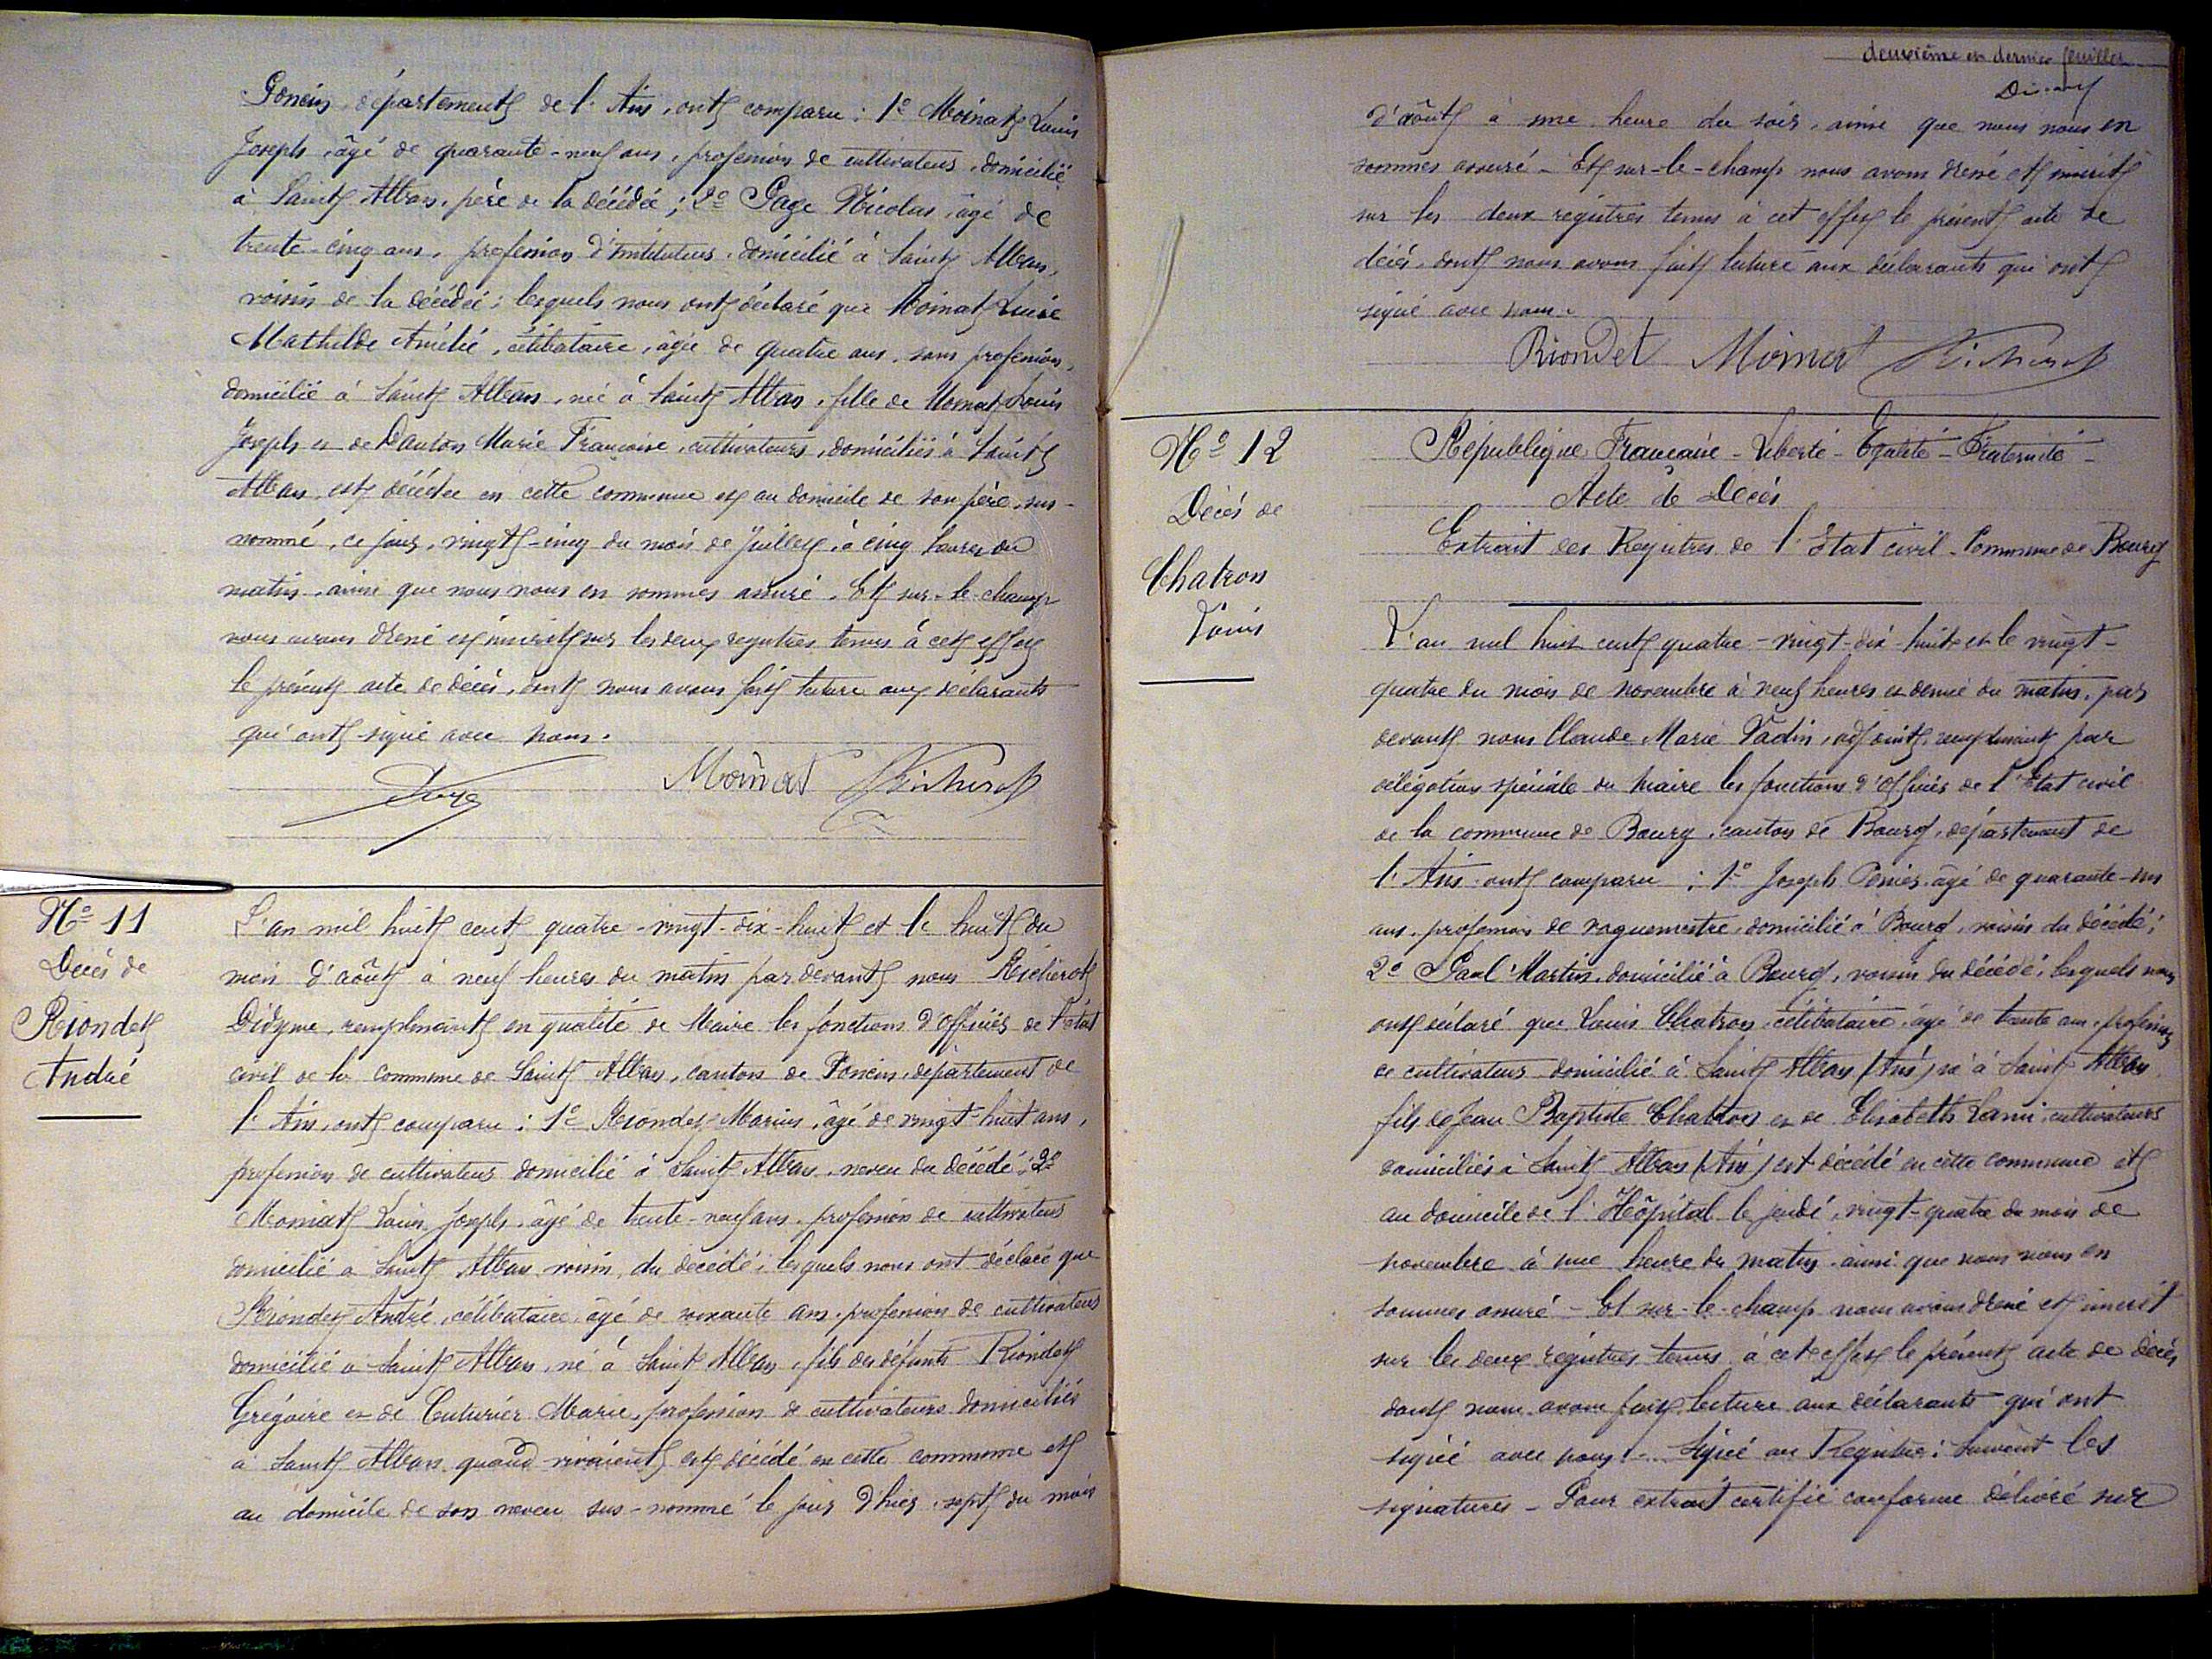 Poncin, département de l'Ain, ont comparu : 1º Moinat Louis
Joseph, âgé de quarante-neuf ans, profession de cultivateur, domicilié
à Saint Alban, père de la décédée ; 2º Page Nicolas, âgé de
trente-cinq ans, profession d'instituteur, domicilié à Saint Alban,
voisin de la décédée ; lesquels nous ont déclaré que Moinat Luise
Mathilde Amélie, célibataire, âgée de quatre ans, sans profession,
domicilié à Saint Alban, née à Saint Alban, fille de Moinat Louis
Joseph et de Danton Marie Françoise, cultivateurs, domiciliés à Saint
Alban, est décédée en cette commune et au domicile de son père, sus-
nommé, ce jour, vingt-cinq du mois de Juillet, à cinq heures du
matin, ainsi que nous nous en sommes assuré. Et sur-le-champ
nous avons dressé et inscrit sur les deux registres tenus à cet effet
le présent acte de décès, dont nous avons fait lecture aux déclarants
qui ont signé avec nous.
Page Moinat Richerot
Nº 11
Décès de
Riondet
André
L'an mil huit cent quatre-vingt-dix-huit et le huit du
mois d'août à neuf heures du matin par devant nous Richerot
Didyme, remplissant en qualité de Maire les fonctions d'officier de l'état
civil de la commune de Saint Alban, canton de Poncin, département de
l'Ain, ont comparu : 1º Riondet Marius, âgé de vingt-huit ans,
profession de cultivateur domicilié à Saint Alban, neveu du décédé ; 2º
Moinat Louis Joseph, âgé de trente-neuf ans, profession de cultivateur
domicilié à Saint Alban voisin, du décédé ; lesquels nous ont déclaré que
Riondet André, célibataire, âgé de soixante ans, profession de cultivateur
domicilié à Saint Alban, né à Saint Alban, fils des défunts Riondet
Grégoire et de Couturier Marie, profession de cultivateurs domiciliés
à Saint Alban quand vivaient est décédé en cette commune et
au domicile de son neveu sus-nommé le jour d'hier, sept du mois
deuxième et dernier feuillet
d'août à une heure du soir, ainsi que nous nous en
sommes assuré - Et sur-le-champ nous avons dressé et inscrit
sur les deux registres tenus à cet effet le présent acte de
décès, dont nous avons fait lecture aux déclarants qui ont
signé avec nous.
Riondet Moinat Richerot
Nº 12
Décès de
Chatron
Louis
République Française - Liberté - Egalité - Fraternité -
Acte de Décès
Extrait des Registres de l'Etat civil - Commune de Bourg
L'an mil huit cent quatre-vingt-dix-huit et le vingt-
quatre du mois de novembre à neuf heures et demie du matin, par
devant nous Claude Marie Vadin, adjoint, remplissant par
délégation spéciale du Maire les fonctions d'officier de l'Etat civil
de la commune de Bourg, canton de Bourg, département de
l'Ain ont comparu : 1º Joseph âgé de quarante-un
ans, profession de vaguemestre, domicilié à Bourg, voisin du décédé ;
2º Paul Martin, domicilié à Bourg, voisin du décédé, lesquels nous
ont déclaré que Louis Chatron, célibataire, âgé de trente ans, profession
de cultivateur domicilié à Saint Alban (Ain) né à Saint Alban
fils de Jean Baptiste Chatron et de Elisabeth Lami, cultivateurs
domiciliés à Saint Alban (Ain) est décédé en cette commune et
au domicile de l'Hôpital le jeudi, vingt-quatre du mois de
novembre à une heure du matin, ainsi que nous nous en
sommes assuré - Et sur-le-champ nous avons dressé et inscrit
sur les deux registres tenus à cet effet le présent acte de décès
dont nous avons fait lecture aux déclarants qui ont
signé avec nous - Signé au Registre : Suivent les
signatures - Pour extrait certifié conforme délivré sur